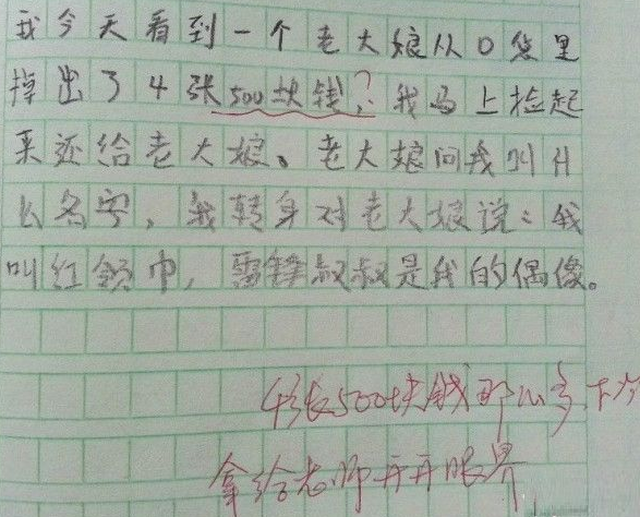 我今天看到一个老大娘从口袋里
掉出了4张500块钱，我马上捡起
?
来还给老大娘、老大娘问我叫什
么名字，我转身对老大娘说：我
叫红领巾，雷锋叔叔是我的偶像。
4张500块钱那么多下次
拿给老师开开眼界